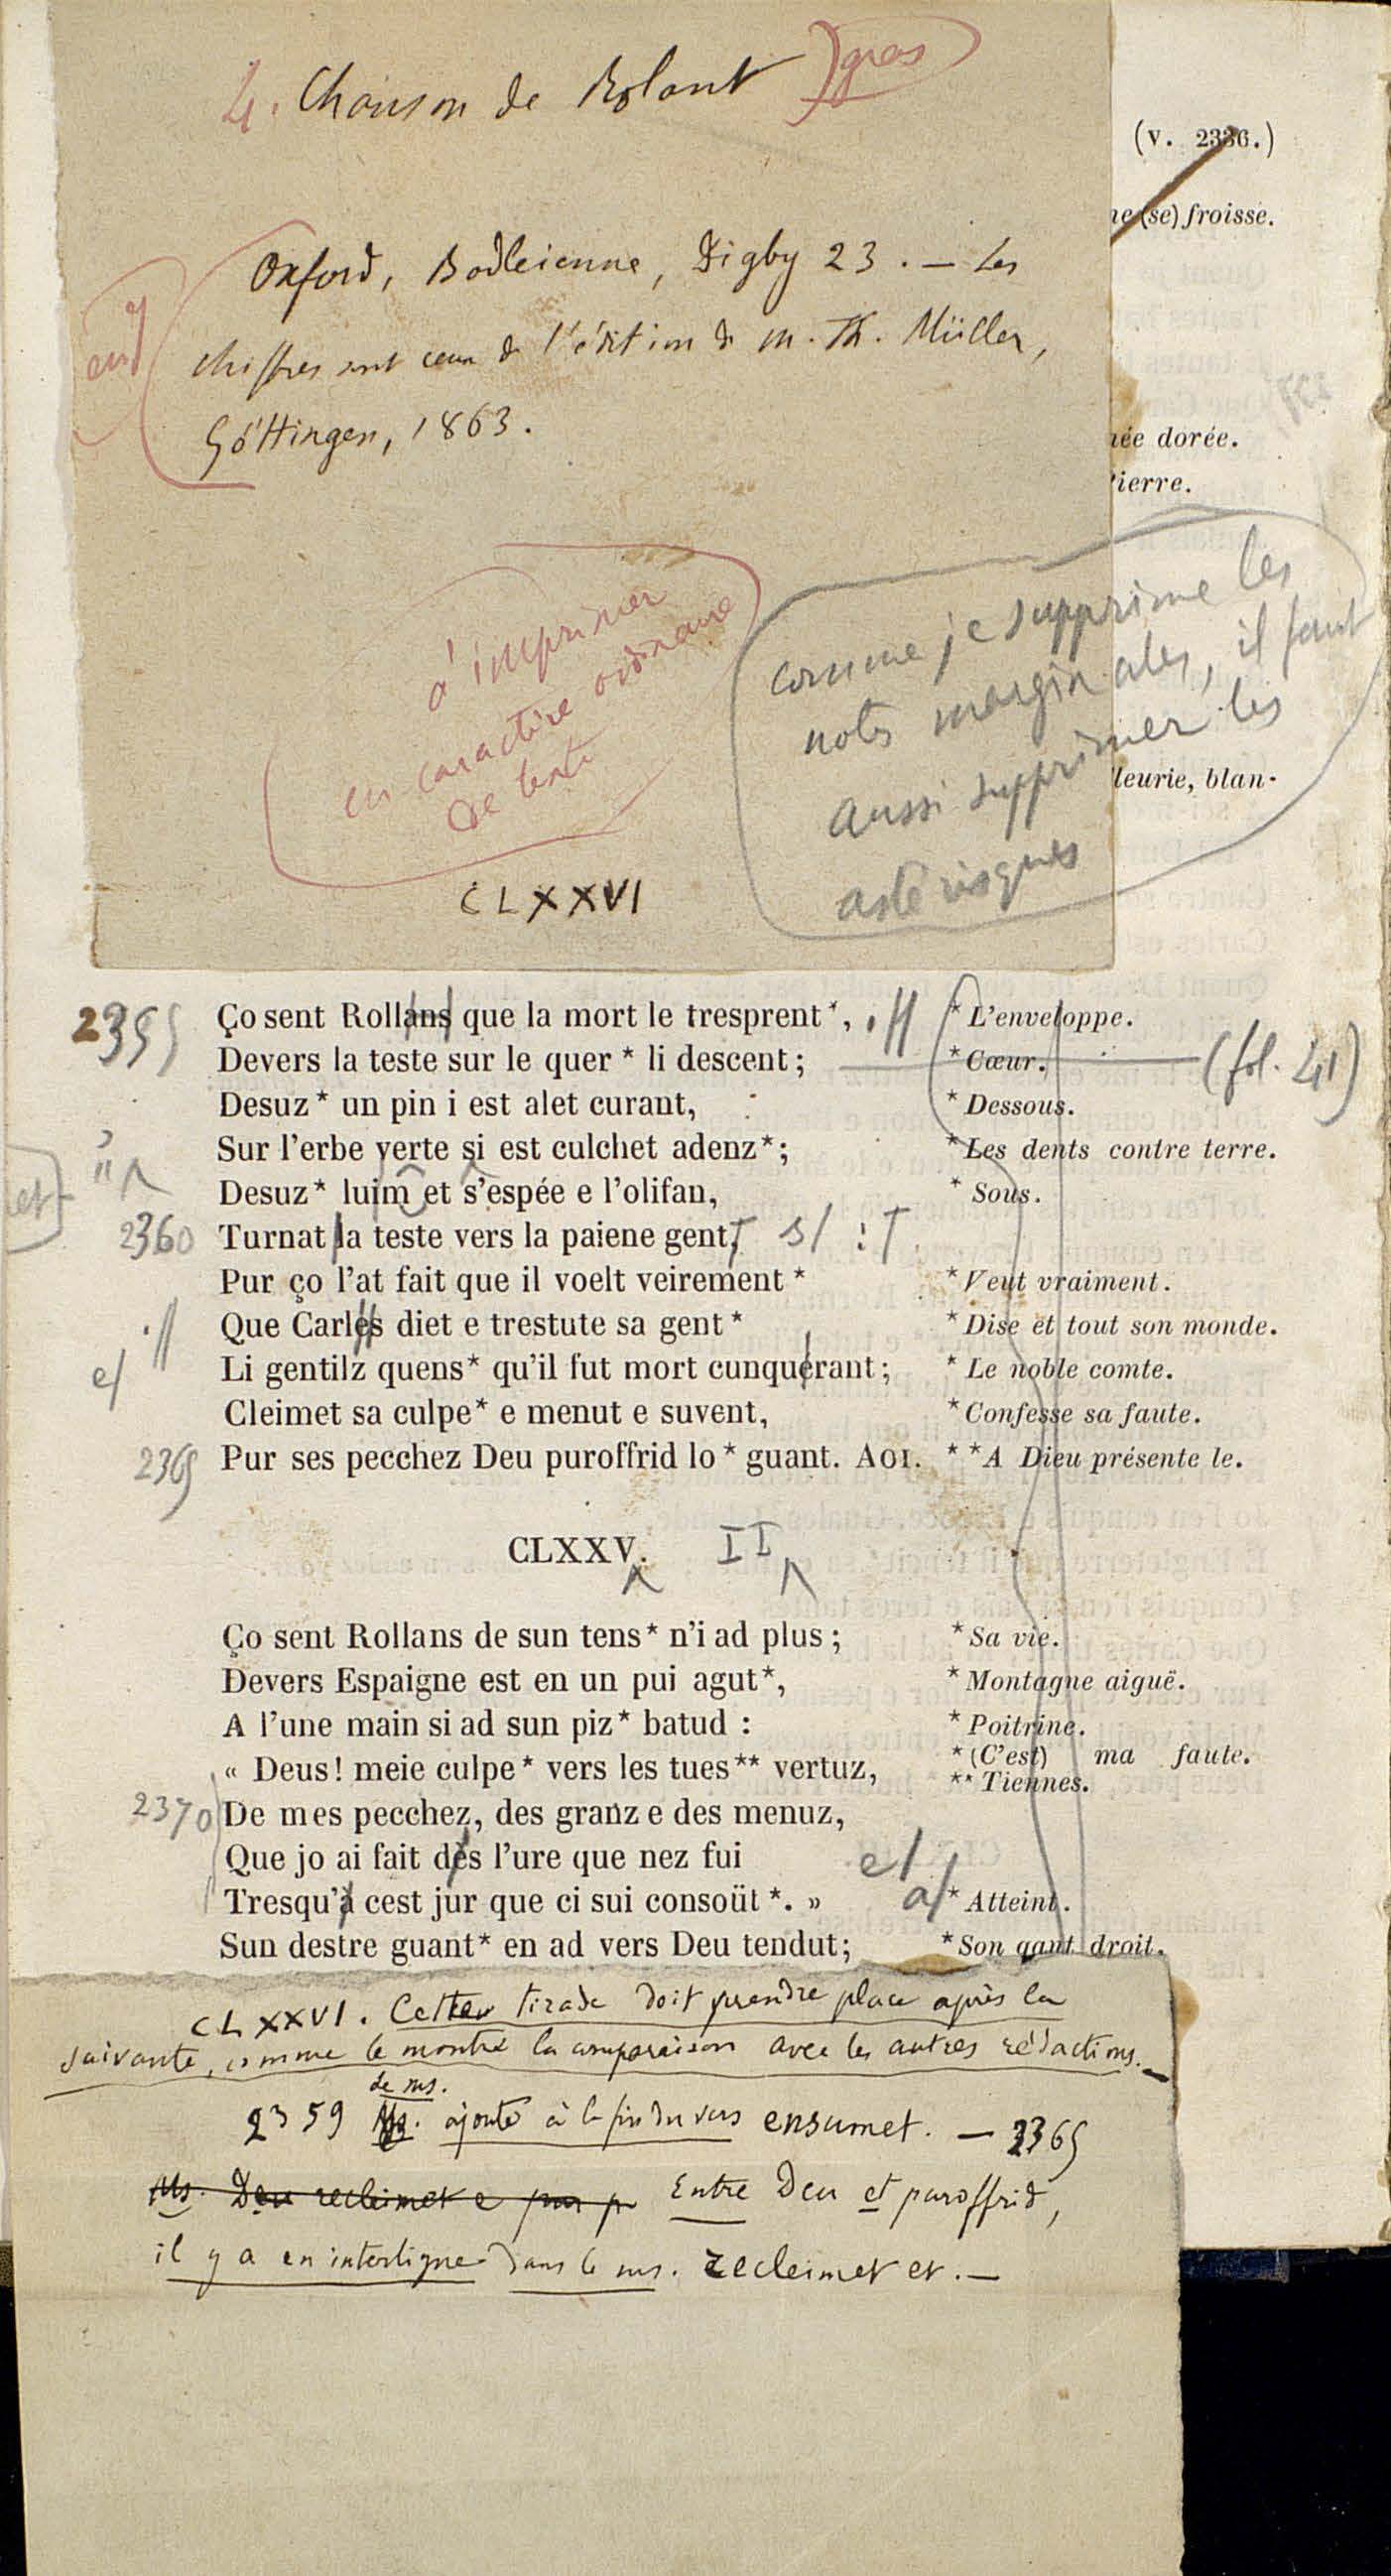 4. Chanson de Rolant gros
(v. 2336.)
(se) froisse.
Oxford, Bodleienne, Digby 23. — Les
chiffres sont ceux de l'édition de M. Th. Müller,
Göttingen, 1863.
née dorée.
Pierre.
à imprimer
en caractère ordinaire
de texte
comme je supprime les
notes marginales, il faut
aussi supprimer les
astérisques
fleurie, blan-
CLXXVI
2355 Ço sent Rollans que la mort le tresprent*, * L'enveloppe.
Devers la teste sur le quer * li descent; * Cœur. (fol. 41)
Desuz * un pin i est alet curant, * Dessous.
Sur l'erbe verte si est culchet adenz*; * Les dents contre terre.
Desuz* luim et s'espée e l'olifan, * Sous.
2360 Turnat la teste vers la paiene gent, s/ :
Pur ço l'at fait que il voelt veirement * * Veut vraiment.
Que Carles diet e trestute sa gent * * Dise et tout son monde.
e/ Li gentilz quens* qu'il fut mort cunquérant; * Le noble comte.
Cleimet sa culpe* e menut e suvent, * Confesse sa faute.
2365 Pur ses pecchez Deu puroffrid lo * guant. AOI. * *A Dieu présente le.
CLXXV. II
Ço sent Rollans de sun tens* n'i ad plus; * Sa vie.
Devers Espaigne est en un pui agut*, * Montagne aiguë.
A l'une main si ad sun piz* batud : * Poitrine.
« Deus! meie culpe* vers les tues** vertuz, * (C'est) ma faute.
** Tiennes.
2370 De mes pecchez, des granz e des menuz,
Que jo ai fait dès l'ure que nez fui e/
Tresqu'à cest jur que ci sui consoüt *. » a/ * Atteint.
Sun destre guant* en ad vers Deu tendut; * Son gant droit.
CLXXVI. Cette tirade doit prendre place après la
suivante, comme le montre la comparaison avec les autres rédactions. —
le ms.
2359 Ms. ajoute à la fin du vers ensumet. — 2365
Ms. Deu recleimet e pur p Entre Deu et puroffrid,
il y a en interligne dans le ms. recleimet et. —